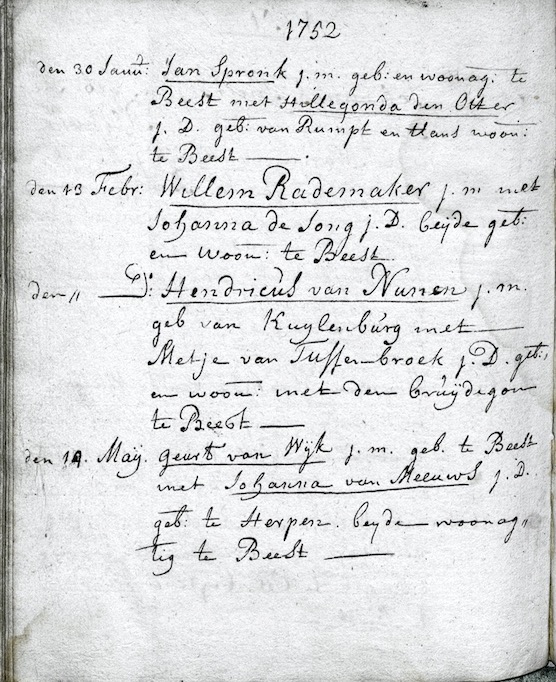 1752
den 30 Janu: Jan Spronk j. m. geb: en woonag: te
Beest met Hillegonda den Otter
j. D. geb: van Rumpt en thans woon:
te Beest ——.
den 13 Febr: Willem Rademaker j. m met
Johanna de Jong j. D. beÿde geb:
en woon: te Beest.
den 11 — D°: Hendricus van Nunen j. m.
geb van Kuylenburg met —
Metje van Tussenbroek j. D. geb:
en woon: met den bruÿdegom
te Beest —
den 14. Maÿ. geurt van Wÿk j. m. geb. te Beest
met Johanna van Meeuws j. D.
geb: te Herpen. beyde woonag„
tig te Beest ——